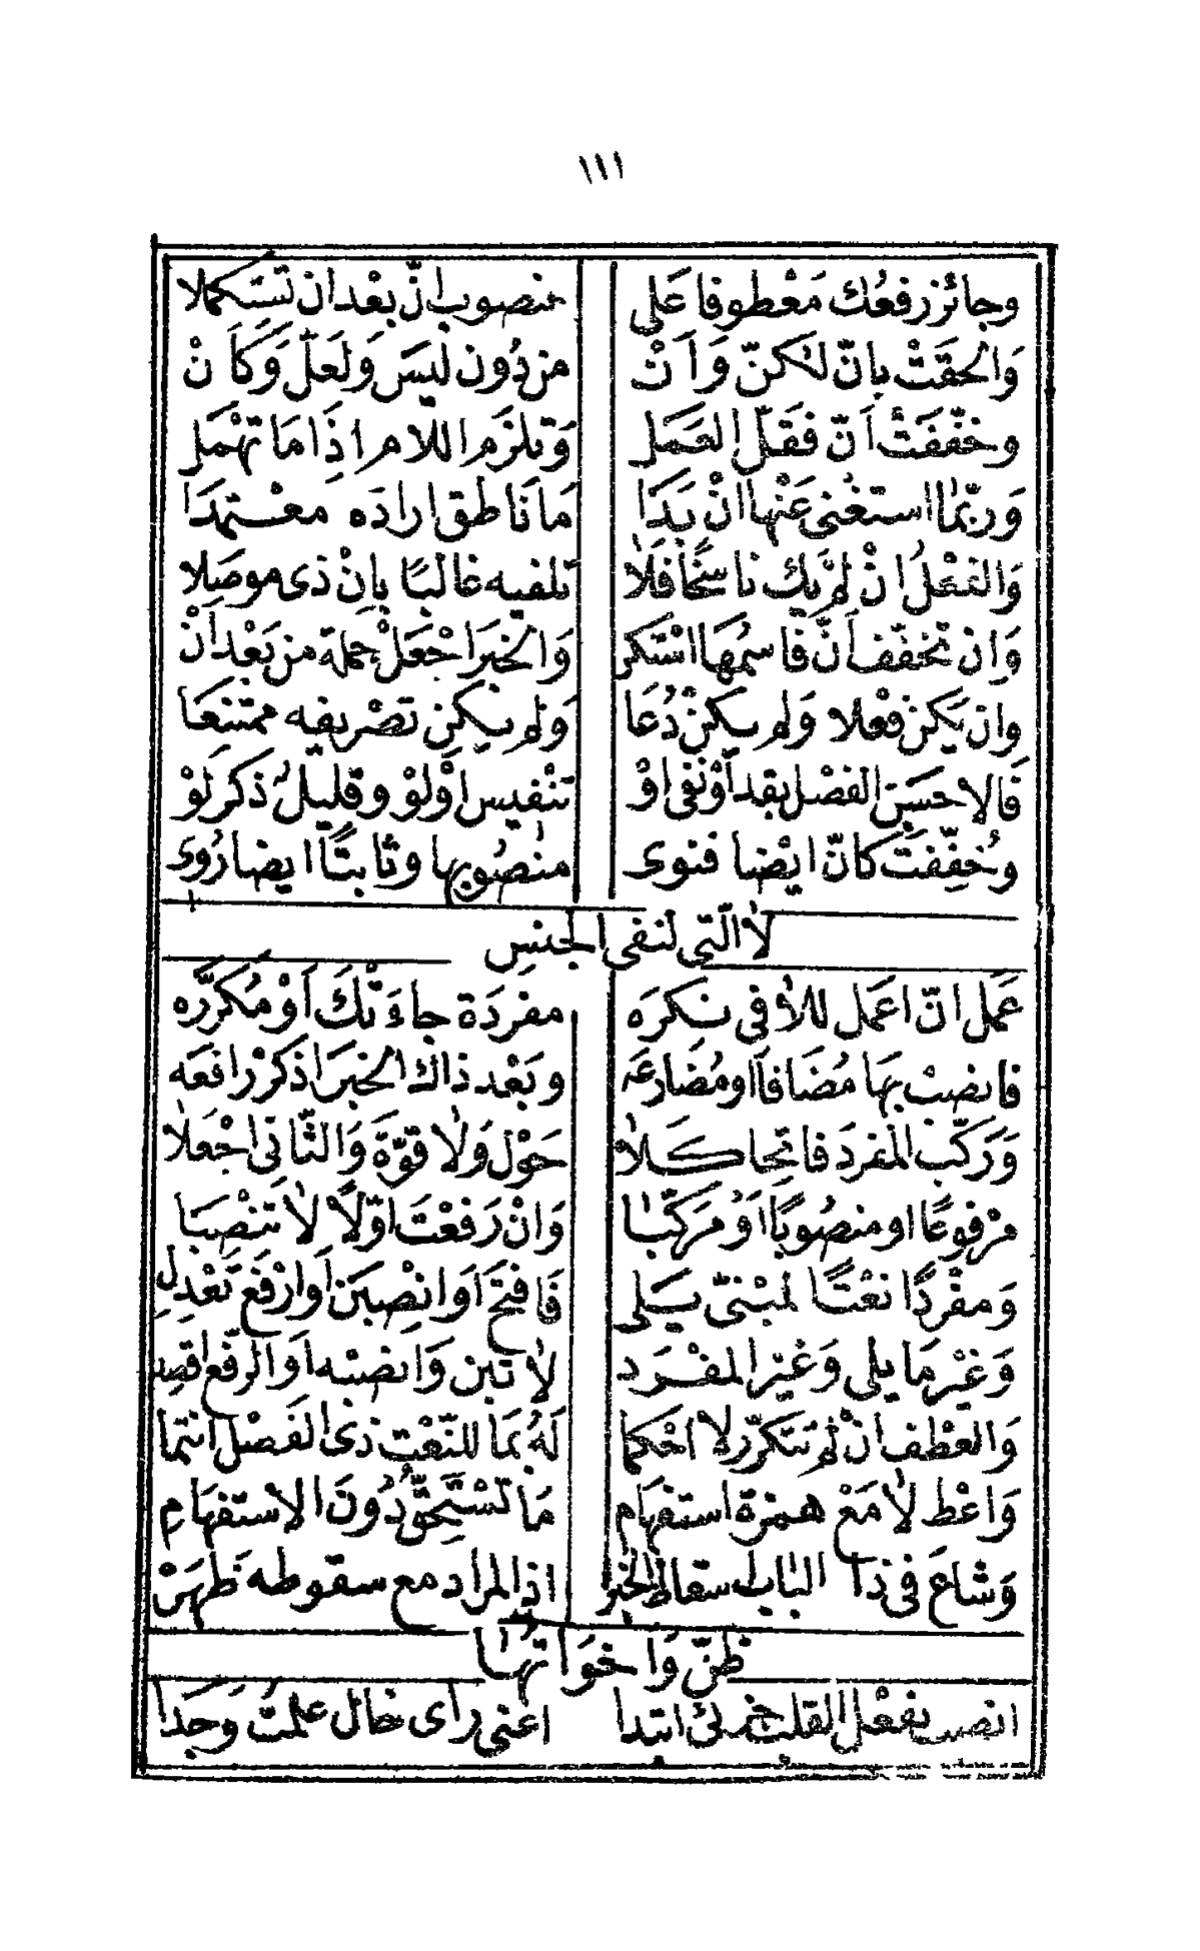 ١١١
وجائز رفعُك مَعْطوفا عَلى منصوب انّ بعْدان تَستكملا
وَالحقَتْ بانّ لٰكنّ وَاَنْ من دُون لَيْسَ وَلَعَلَّ وَكَاَنْ
وخفّفَتْ اَنّ فَقَلّ العَمَل وَتلزَم اللام اذَا مَا تهْمَل
وَربّما استغْنى عَنْها انْ بَدَا مَا نَاطق اراده معْتمدَا
وَالفعْلُ انْ لم يَك ناسخًا فَلَا تلفيه غالبًا بِانْ ذى موصَلا
وَان تخفّف اَنَّ فَاسمُهَا اسْتكن وَالخبَر اجْعَلْ جملة من بَعْد اَنْ
وان يَكن فعْلا وَلم يكنْ دُعَا وَلم يكن تصْريفه ممتنعَا
فالاحسَن الفصْل بقد اَوْ نفى اوْ تنْفيس اوْلَوْ وقليلٌ ذكر لَوْ
وخُفِّفَتْ كانّ ايْضا فنوى منصُوبها وثابتًا ايضا رُوى
لَا الّتى لنفى الجنسِ
عَمَل انّ اعَمل للاٰ فى نكرَه مفرَدَة جاءَتْكَ اَوْ مُكَرَّره
فانصبْ بهَا مُضَافًا او مُضَارعَه وبَعْد ذاك الخبَر اذكرْ رافعَه
وَرَكّب المفردَ فاتحا كَلَاٰ حَوْل وَلَاٰ قوّةَ وَالثّانى اجْعَلاٰ
مرْفوعًا او منصُوبًا اَوْ مرَكّبا وَانْ رَفعْتَ اوّلًا لاٰ تَنْصِبَا
وَمفْردًا نعْتًا لمبْنىّ يَلى فَافتحْ اَوَانْصِبَن اَوارْفَعْ تَعْدِلِ
وَغيْر مَا يلى وَغيْر المفْرَد لاٰ تَبن وَانصبْه اَوالرّفعَ اقصِد
وَالعَطْف انْ لم تَتَكرّر لَا احْكما لَهُ بمَا للنّعْت ذى الفَصْل انتما
وَاعْط لاٰ مَعْ همزة استفهَام مَا تسْتَحِقُّ دُونَ الاسْتفهَامِ
وَشاعَ فى ذا البَاب اسقاط الخبر اذ المراد مع سقوطه ظهَرْ
ظنّ وَاخوَاتهَا
انصب بفعْل القلب جزءى ابتدا اعنى راى خال علمْتُ وَجَدا